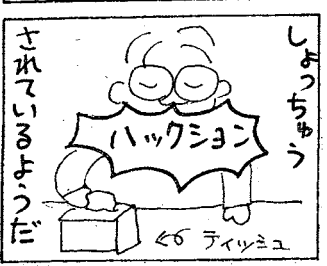 しょっちゅう
ハックション
されているようだ
ティッシュ